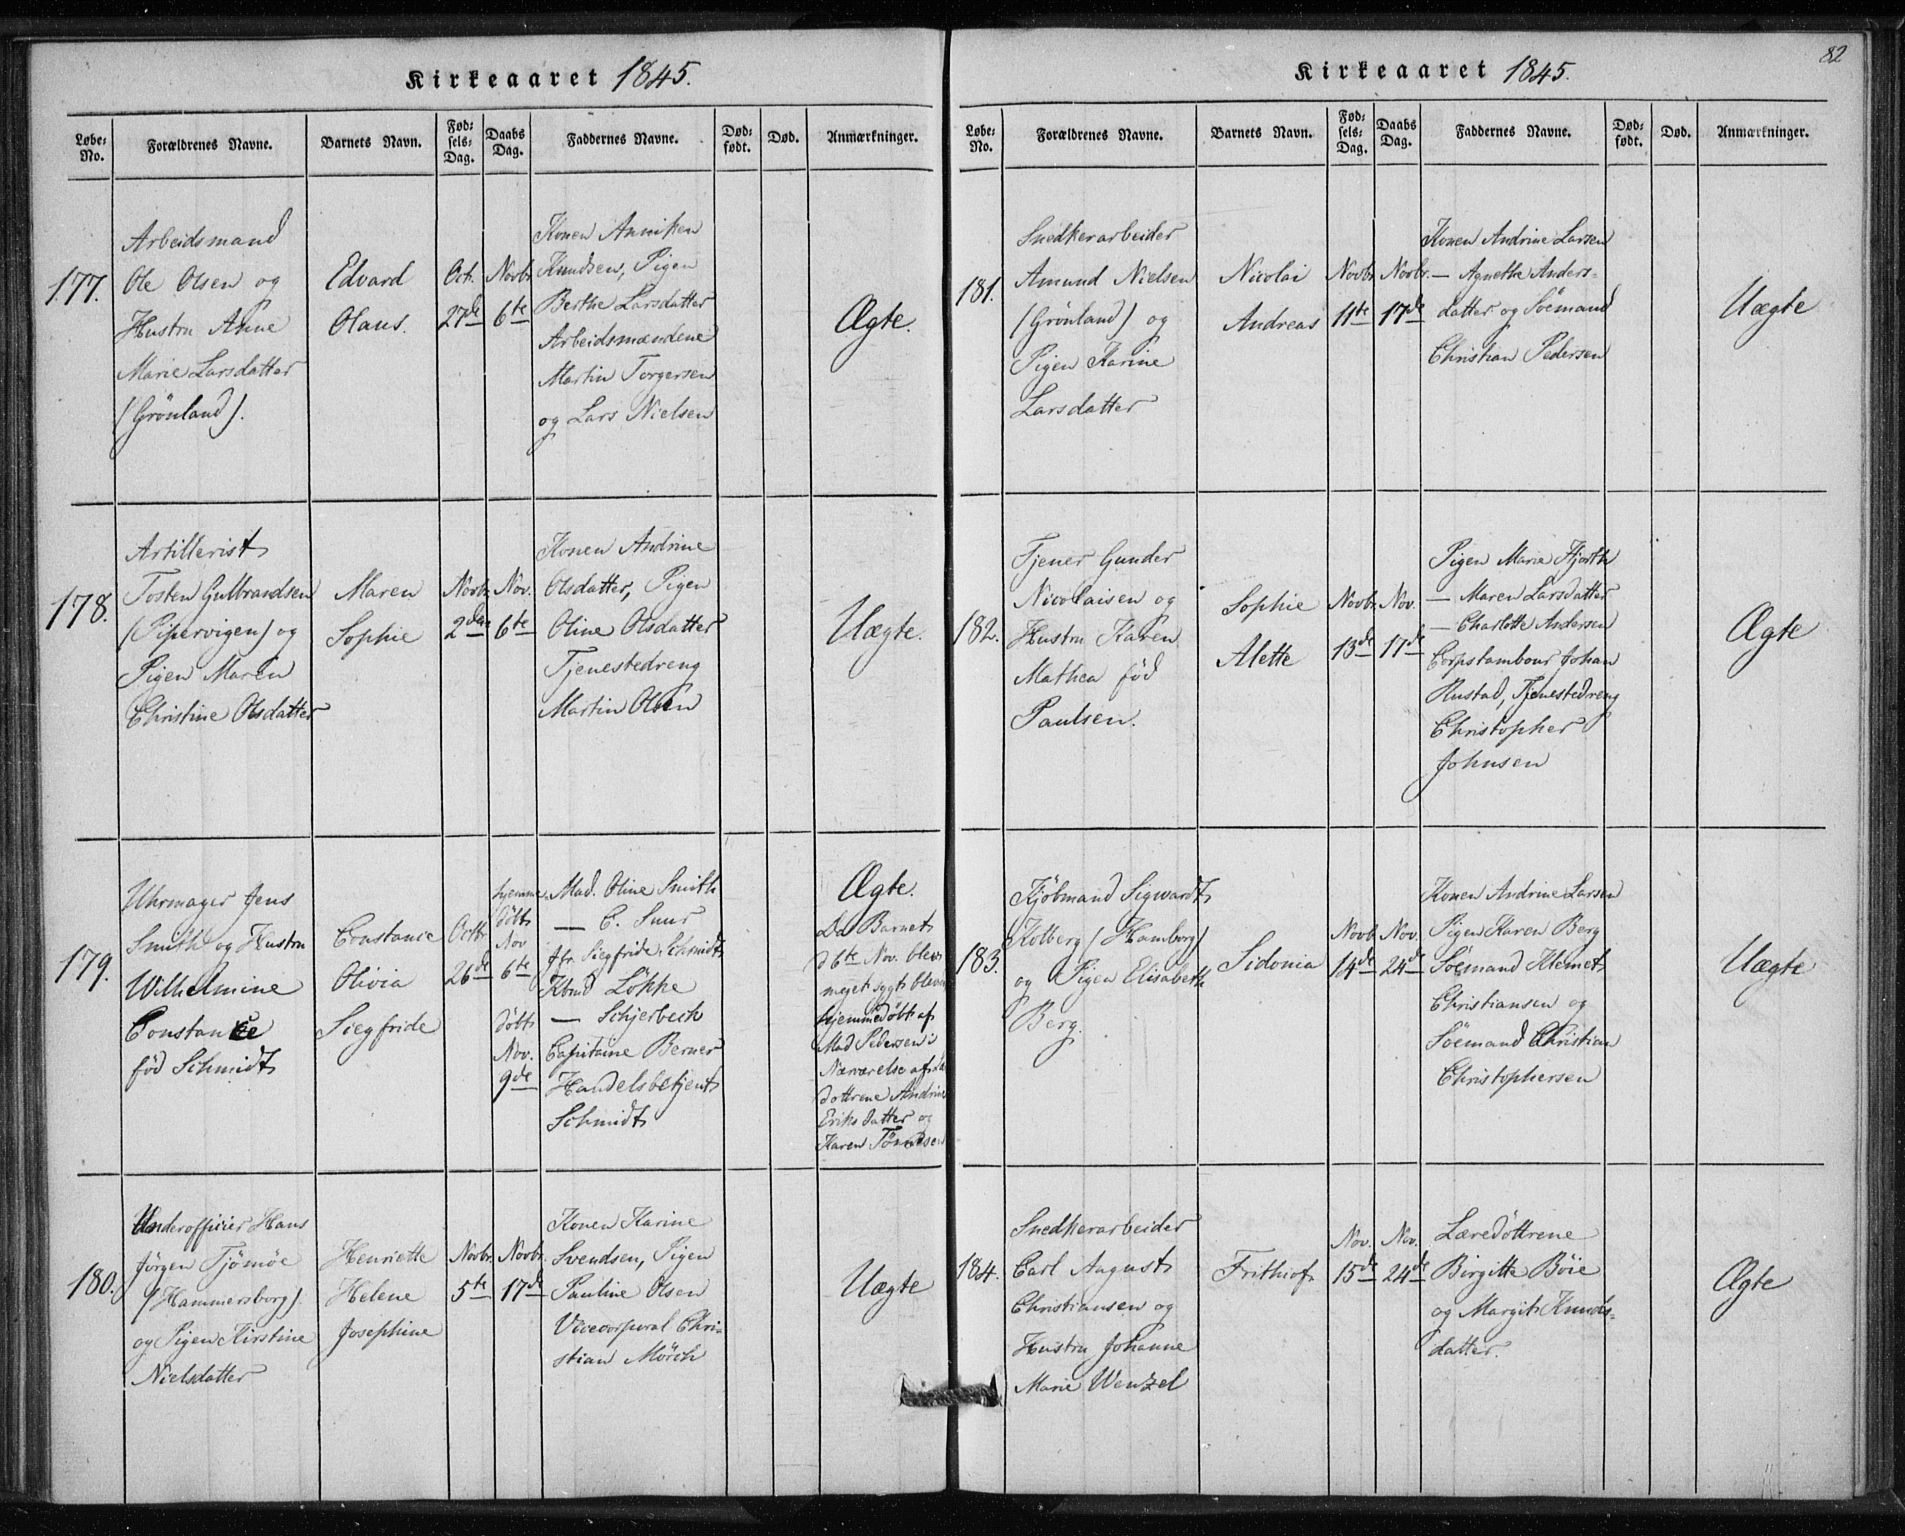 Kirkeaaret 1845.
Løbe-No. Forældrenes Navne. Barnets Navn. Fødselsdag. Daabs Dag. Faddernes Navne. Dødfødt. Død. Anmærkninger.
177.
Arbeidsmand
Ole Olsen og
Hustru Anne
Marie Larsdatter
(Grönland).
Edvard
Olaus.
Oct.
27de
Novbr.
6te
Konen Anniken
Knudsen, Pigen
Berthe Larsdatter
Arbeidsmændene
Martin Torgersen
og Lars Nielsen
Ægte.
178.
Artillerist
Tosten Gulbrandsen
(Pipervigen) og
Pigen Maren
Christine Olsdatter
Maren
Sophie
Novbr.
2den
Nov.
6te
Konen Andrine
Olsdatter, Pigen
Oline Olsdatter
Tjenestedreng
Martin Olsen
Uægte.
179.
Uhrmager Jens
Smith og Hustru
Wilhelmine
Constance
född Schmidt
Constance
Olivia
Siegfride
Octbr
26de
hjemme
döbt
Nov
6te
döbt
Nov.
9de
Mad. Oline Smith
— C. Suur
Jfr. Siegfride Schmidt
Kbmd Lökke
— Schjerbech
Capitaine Berner
Handelsbetjent
Schmidt
Ægte.
Da Barnet
d 6te Nov. blev
meget sygt blev
hjemmedöbt af
Mad Pedersen i
Nærværelse af Læ
döttrene Andrine
Eriksdatter og
Karen Tönnesen
180.
Underofficier Hans
Jørgen Tjömöe
(Hammersborg)
og Pigen Kirstine
Nielsdatter
Henriette
Helene
Josephine
Novbr.
5te
Novbr.
17de
Konen Karine
Svendsen, Pigen
Pauline Olsen
Vicecorporal Chri-
stian Mörch
Uægte
82
Kirkeaaret 1845.
Løbe-No. Forældrenes Navne. Barnets Navn. Fødselsdag. Daabs Dag. Faddernes Navne. Dødfødt. Død. Anmærkninger.
181.
Snedkerarbeider
Amund Nielsen
(Grönland) og
Pigen Karine
Larsdatter
Nicolai
Andreas
Novbr.
11te
Novbr.
17de
Konen Andrine Larsen
— Agnethe Anders-
datter og Söemand
Christian Pedersen
Uægte
182.
Tjener Gunder
Nicolaisen og
Hustru Karen
Mathea föd
Paulsen.
Sophie
Alette
Novbr.
13de
Nov.
17de
Pigen Marie Hjorth
— Maren Larsdatter
— Charlotte Andersen
Corpstambour Johan
Rustad, Tjenestedreng
Christopher
Johnsen
Ægte
183.
Kjöbmand Sigwardt
Kolberg (Hamborg)
og Pigen Elisabeth
Berg.
Sidonia
Novb
14de
Nov.
24de
Konen Andrine Larsen
Pigen Karen Berg
Söemand Klemet
Christiansen og
Söemand Christian
Christophersen
Uægte
184.
Snedkerarbeider
Carl August
Christiansen og
Hustru Johanne
Marie Wenzel
Frithiof
Nov.
15de
Nov.
24de
Læredöttrene
Birgitte Böie
og Margit Knuds-
datter.
Ægte